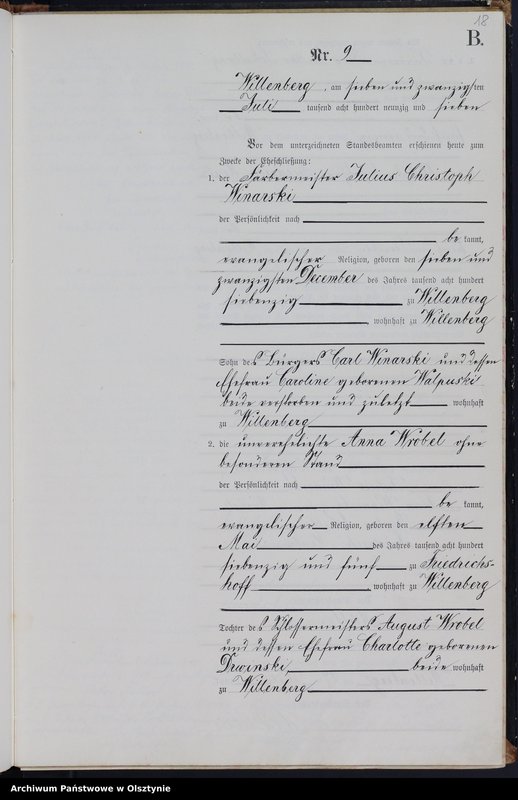 18
B.
Nr. 9
Willenberg, am sieben und zwanzigsten
Juli tausend acht hundert neunzig und sieben
Vor dem unterzeichneten Standesbeamten erschienen heute zum
Zwecke der Eheschließung:
1. der Färbermeister Julius Christoph
Winarski
der Persönlichkeit nach
be kannt,
evangelischer Religion, geboren den sieben und
zwanzigsten December des Jahres tausend acht hundert
siebenzig zu Willenberg
, wohnhaft zu Willenberg
Sohn des Bürgers Carl Winarski und dessen
Ehefrau Caroline geborenen Walpuski
beide verstorben und zuletzt wohnhaft
zu Willenberg
2. die unverehelichte Anna Wrobel ohne
besonderen Stand
der Persönlichkeit nach
be kannt,
evangelischer Religion, geboren den elften
Mai des Jahres tausend acht hundert
siebenzig und fünf zu Friedrichs-
hoff, wohnhaft zu Willenberg
Tochter des Schlossermeisters August Wrobel
und dessen Ehefrau Charlotte geborenen
Drwinski beide wohnhaft
zu Willenberg
Archiwum Państwowe w Olsztynie